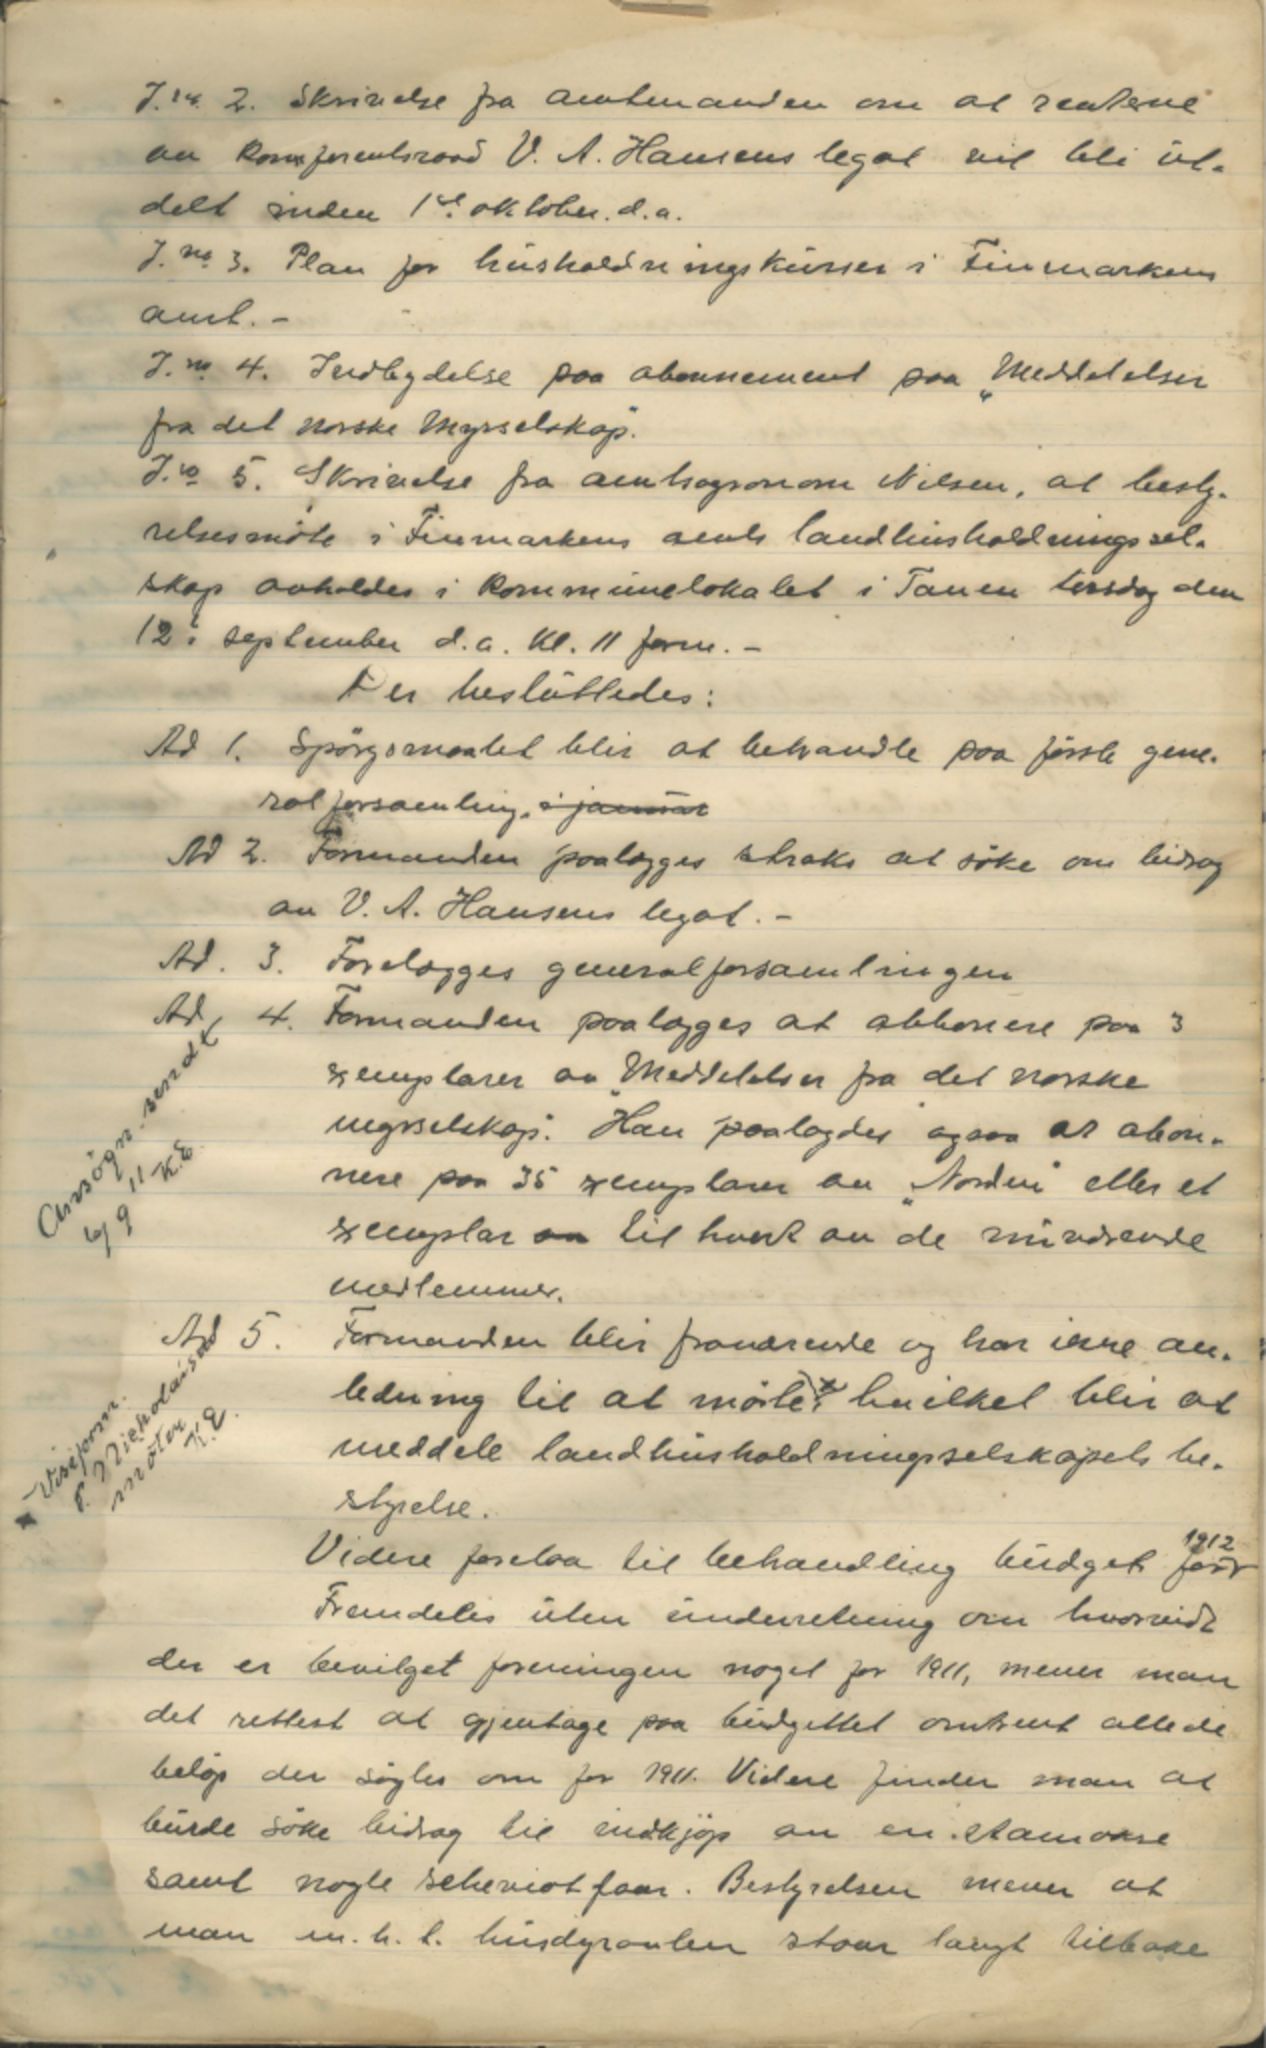 J. no. 2. Skrivelse fra amtmanden om at renterne
av Konferentsraad V. A. Hansens legat vil bli ut-
delt inden 1ste oktober. d.a.
J. no 3. Plan for husholdningskurser i Finmarkens
amt. -
J. no 4. Indbydelse paa abonnement paa „Meddelelser
fra det norske Myrselskap".
J. no 5. Skrivelse fra amtsagronom Nilsen, at besty-
relsesmöte i Finmarkens amts landhusholdningssel-
skap avholdes i Kommunelokalet i Tanen tirsdag den
12. september d.a. Kl. 11 form. -
Der besluttedes:
Ad 1. Spörgsmaalet blir at behandle paa förste gene-
ralforsamling. i januar
Ad 2. Formanden paalægges straks at söke om bidrag
av V. A. Hansens legat. -
Ad. 3. Forelægges generalforsamlingen
Ad. 4. Formanden paalægges at abbonere paa 3
xemplarer av „Meddelelser fra det norske
myrselskap". Han paalagdes ogsaa at abon-
nere paa 35 xemplarer av „Norden" eller et
xemplar av til hvert av de nuværende
medlemmer.
Ansögn. sendt
6/9 11 K.E.
Ad 5. Formanden blir fraværende og har ikke an-
ledning til at möte, hvilket blir at
meddele landhusholdningsselskapets be-
styrelse.
Viseform.
P. Nicholaisen
möter
K.E.
Videre forelaa til behandling budget for 1912
Fremdeles uten underretning om hvorvidt
der er bevilget foreningen noget for 1911, mener man
det rettest at gjentage paa budgettet omtrent alle de
belöp der søgtes om for 1911. Videre finder man at
burde söke bidrag til indkjöp av en stamokse
samt nogle scheviotfaar. Bestyrelsen mener at
man m.h.t. husdyravlen staar langt tilbake